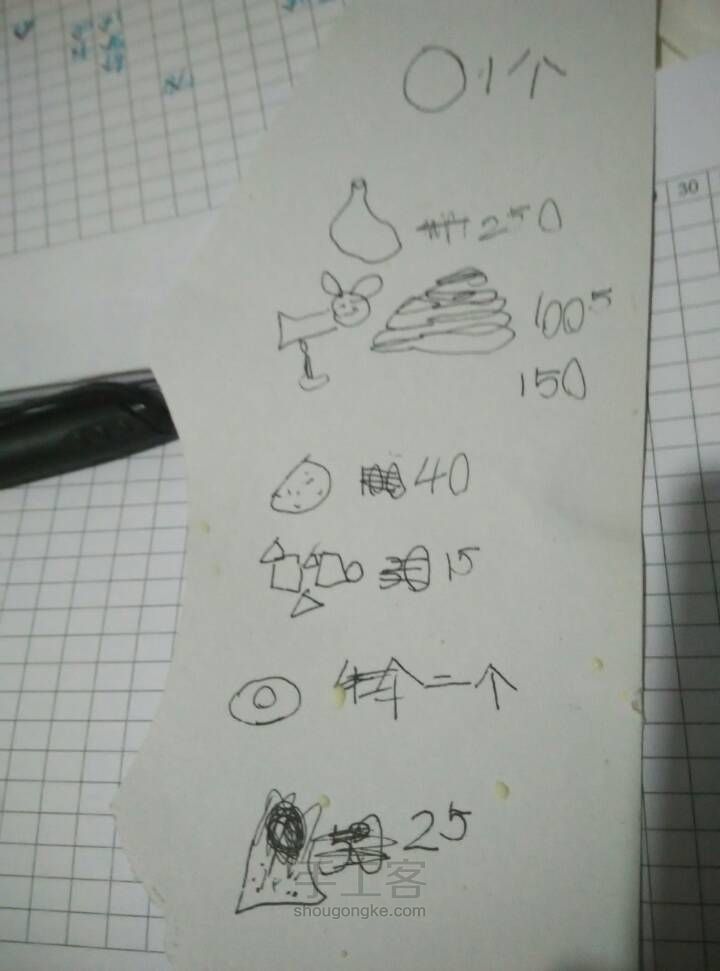 30
1个
250
100
150
40
15
二个
25
手工客
shougongke.com